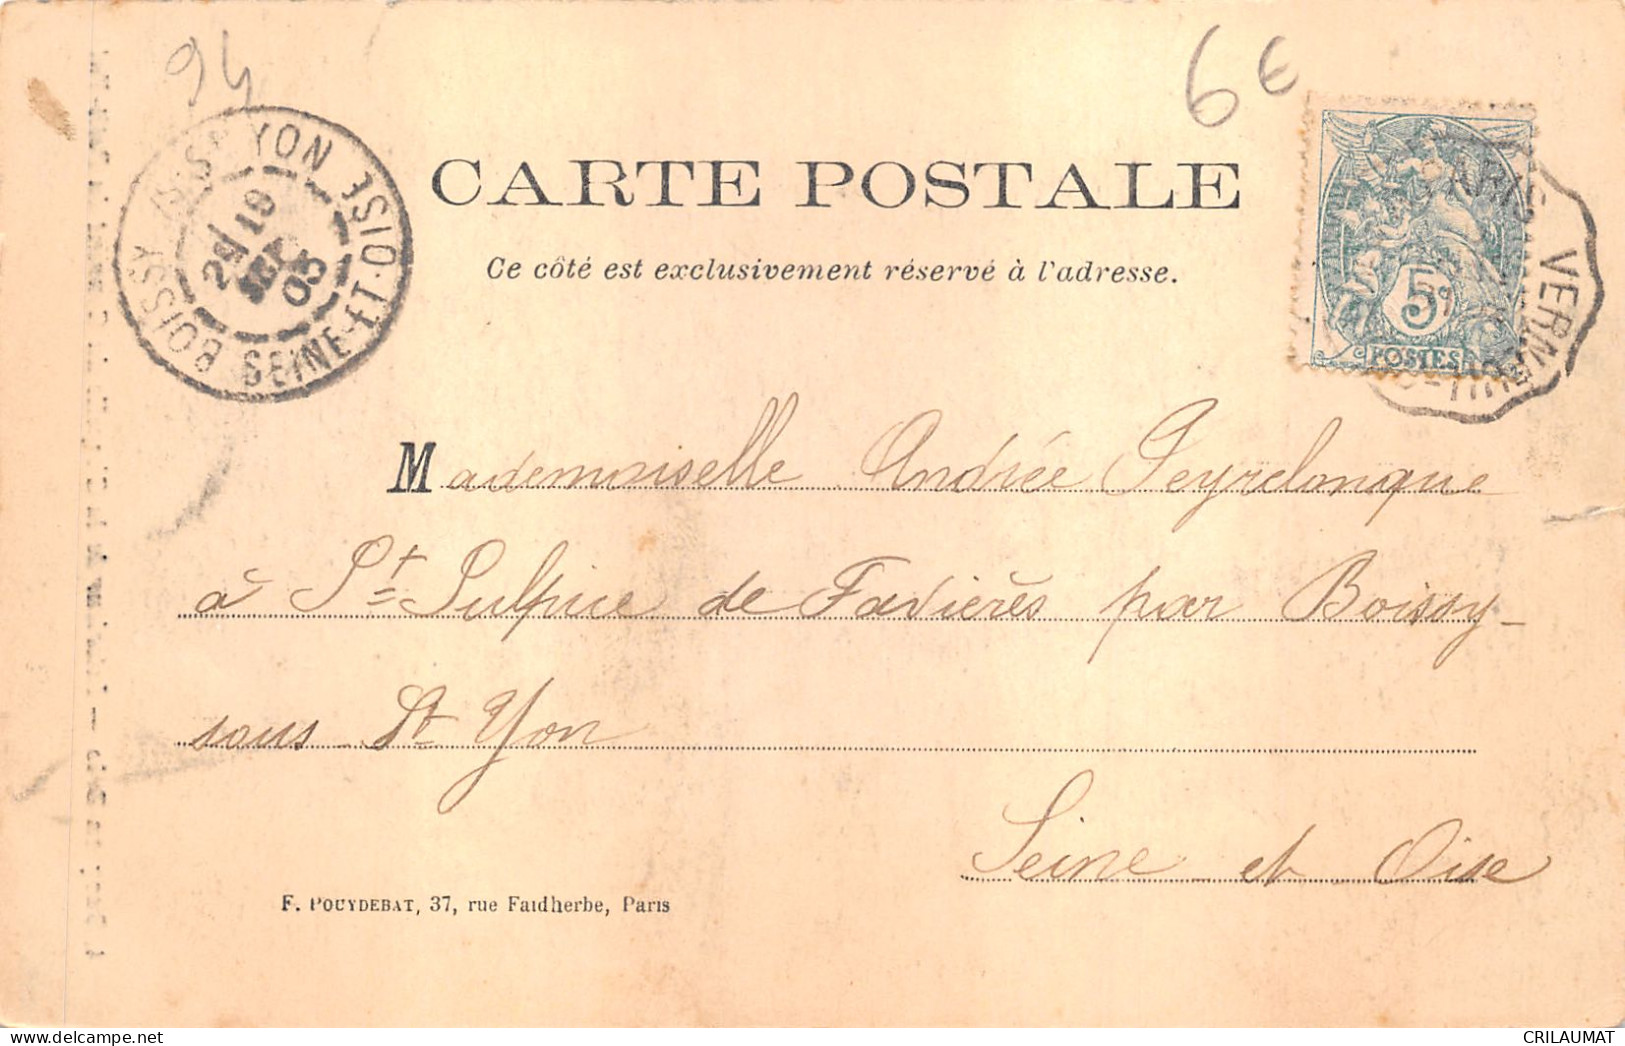 94
6 €
BOISSY-S/S-ST YON SEINE-ET-OISE
2E 19
SEPT
03
CARTE POSTALE
Ce côté est exclusivement réservé à l'adresse.
5c
POSTES
VERNEUIL
Mademoiselle Andrée Peyrelongue
à St Sulpice de Favières par Boissy-
sous St Yon
Seine et Oise
F. POUYDEBAT, 37, rue Faidherbe, Paris
CRILAUMAT